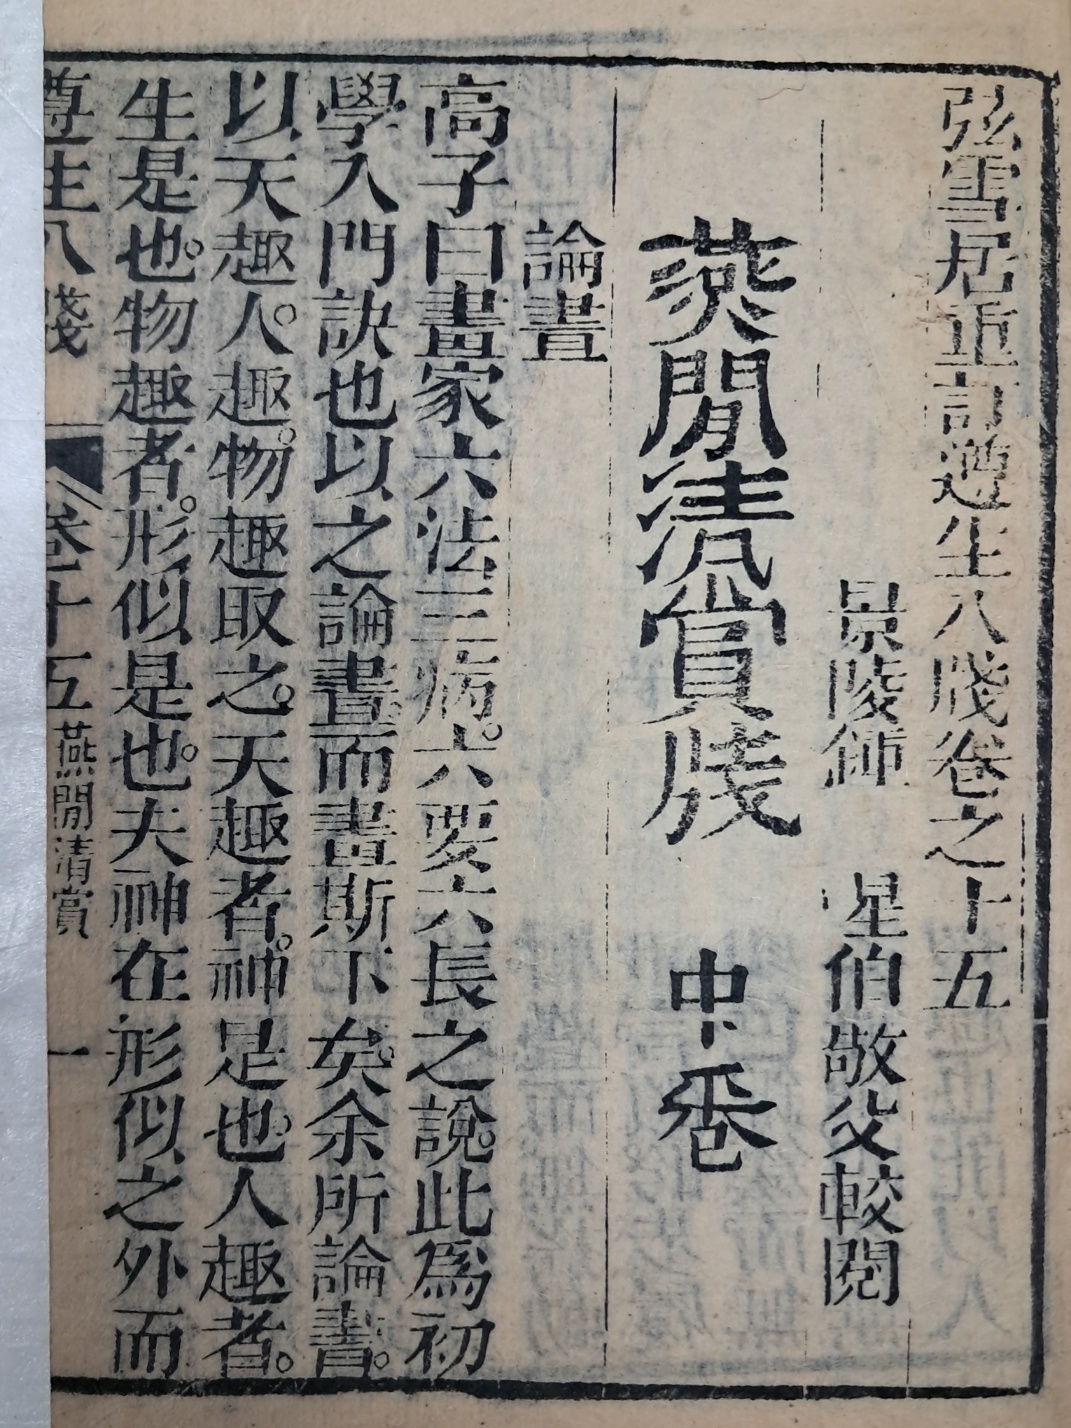 弦雪居重訂遵生八牋卷之十五
景陵鍾 惺伯敬父較閱
燕閒清賞牋 中卷
論畫
高子曰畫家六法三病。六要六長之說。此爲初
學入門訣也以之論畫而畫斯下矣。余所論畫。
以天趣。人趣。物趣取之。天趣者。神是也。人趣者。
生是也。物趣者。形似是也。夫神在形似之外而
尊生八牋 卷十五 燕閒清賞 一